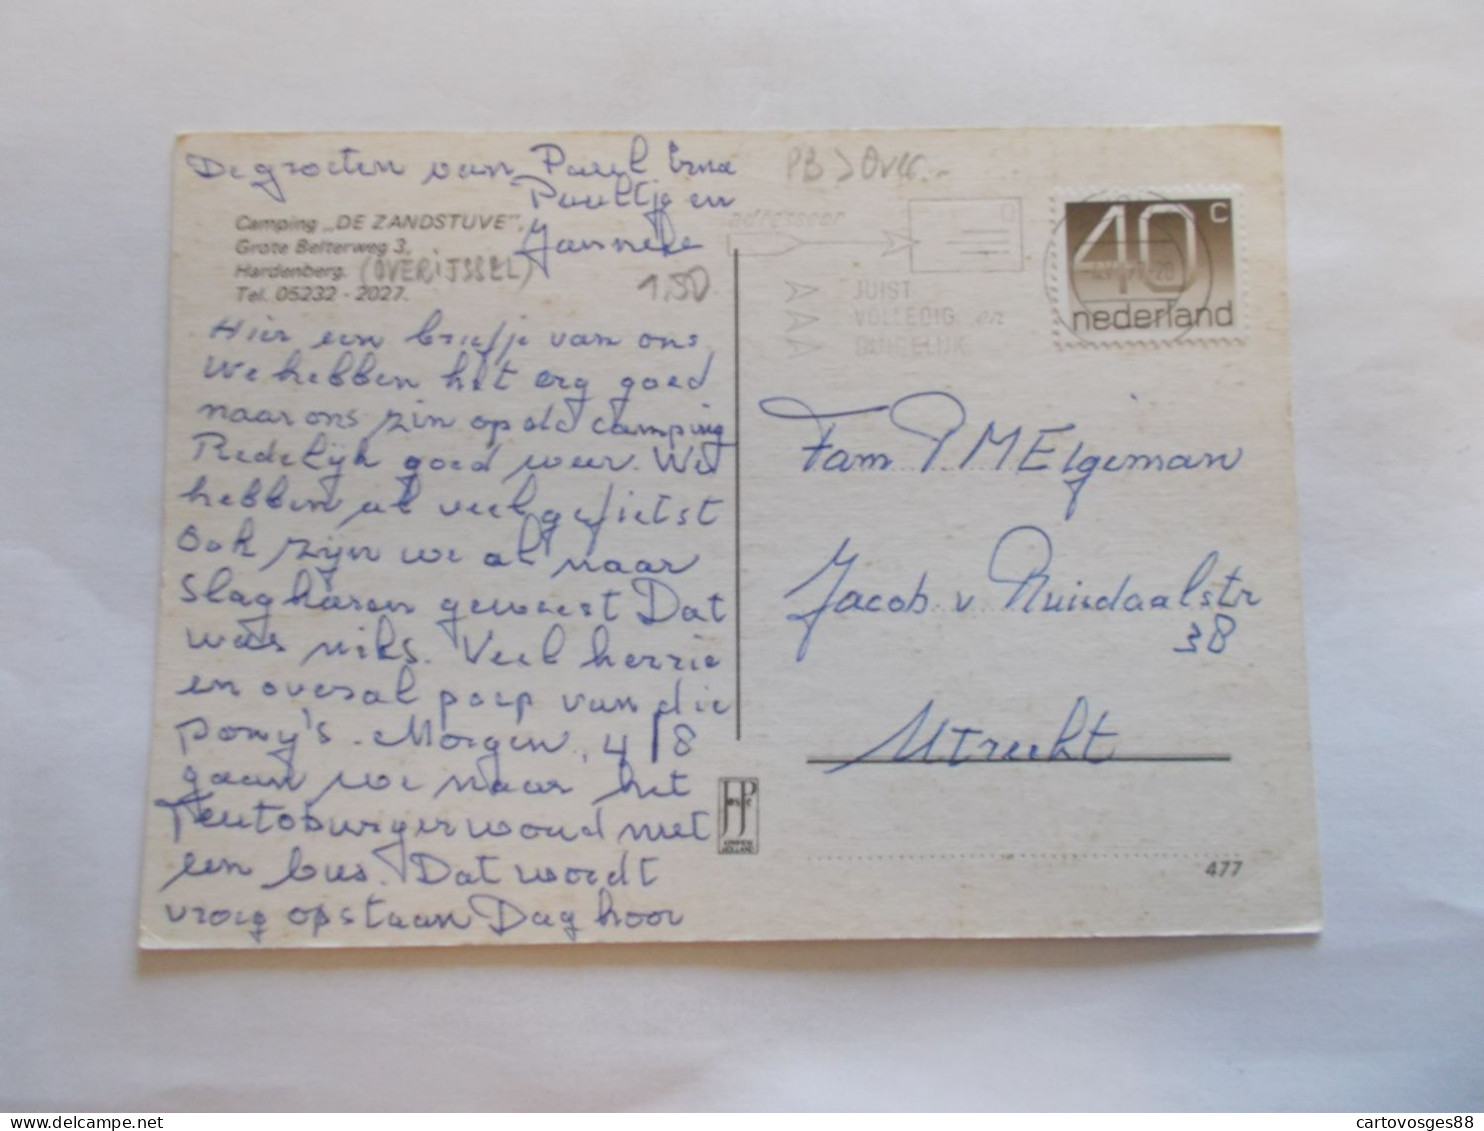 De groeten van Paul Erna
Paultje en
Janneke
Camping „DE ZANDSTUVE",
Grote Belterweg 3,
Hardenberg. (OVERIJSSEL)
Tel. 05232 - 2027.
1,50
Hier een briefje van ons,
We hebben het erg goed
naar ons zin op de camping
Redelijk goed weer. We
hebben al veel gefietst
Ook zijn we al naar
Slagharen geweest Dat
was niks. Veel herrie
en overal poep van die
pony's. Morgen, 4/8
gaan we naar het
Teutoburgerwoud met
een bus. Dat wordt
vroeg opstaan Dag hoor
PB > Over..
adresseer
JUIST
VOLLEDIG en
DUIDELIJK
40 c
nederland
Fam P.M Elgeman
Jacob v Ruisdaalstr
38
Utrecht
JosPé
HOLLAND
477
cartovosges88